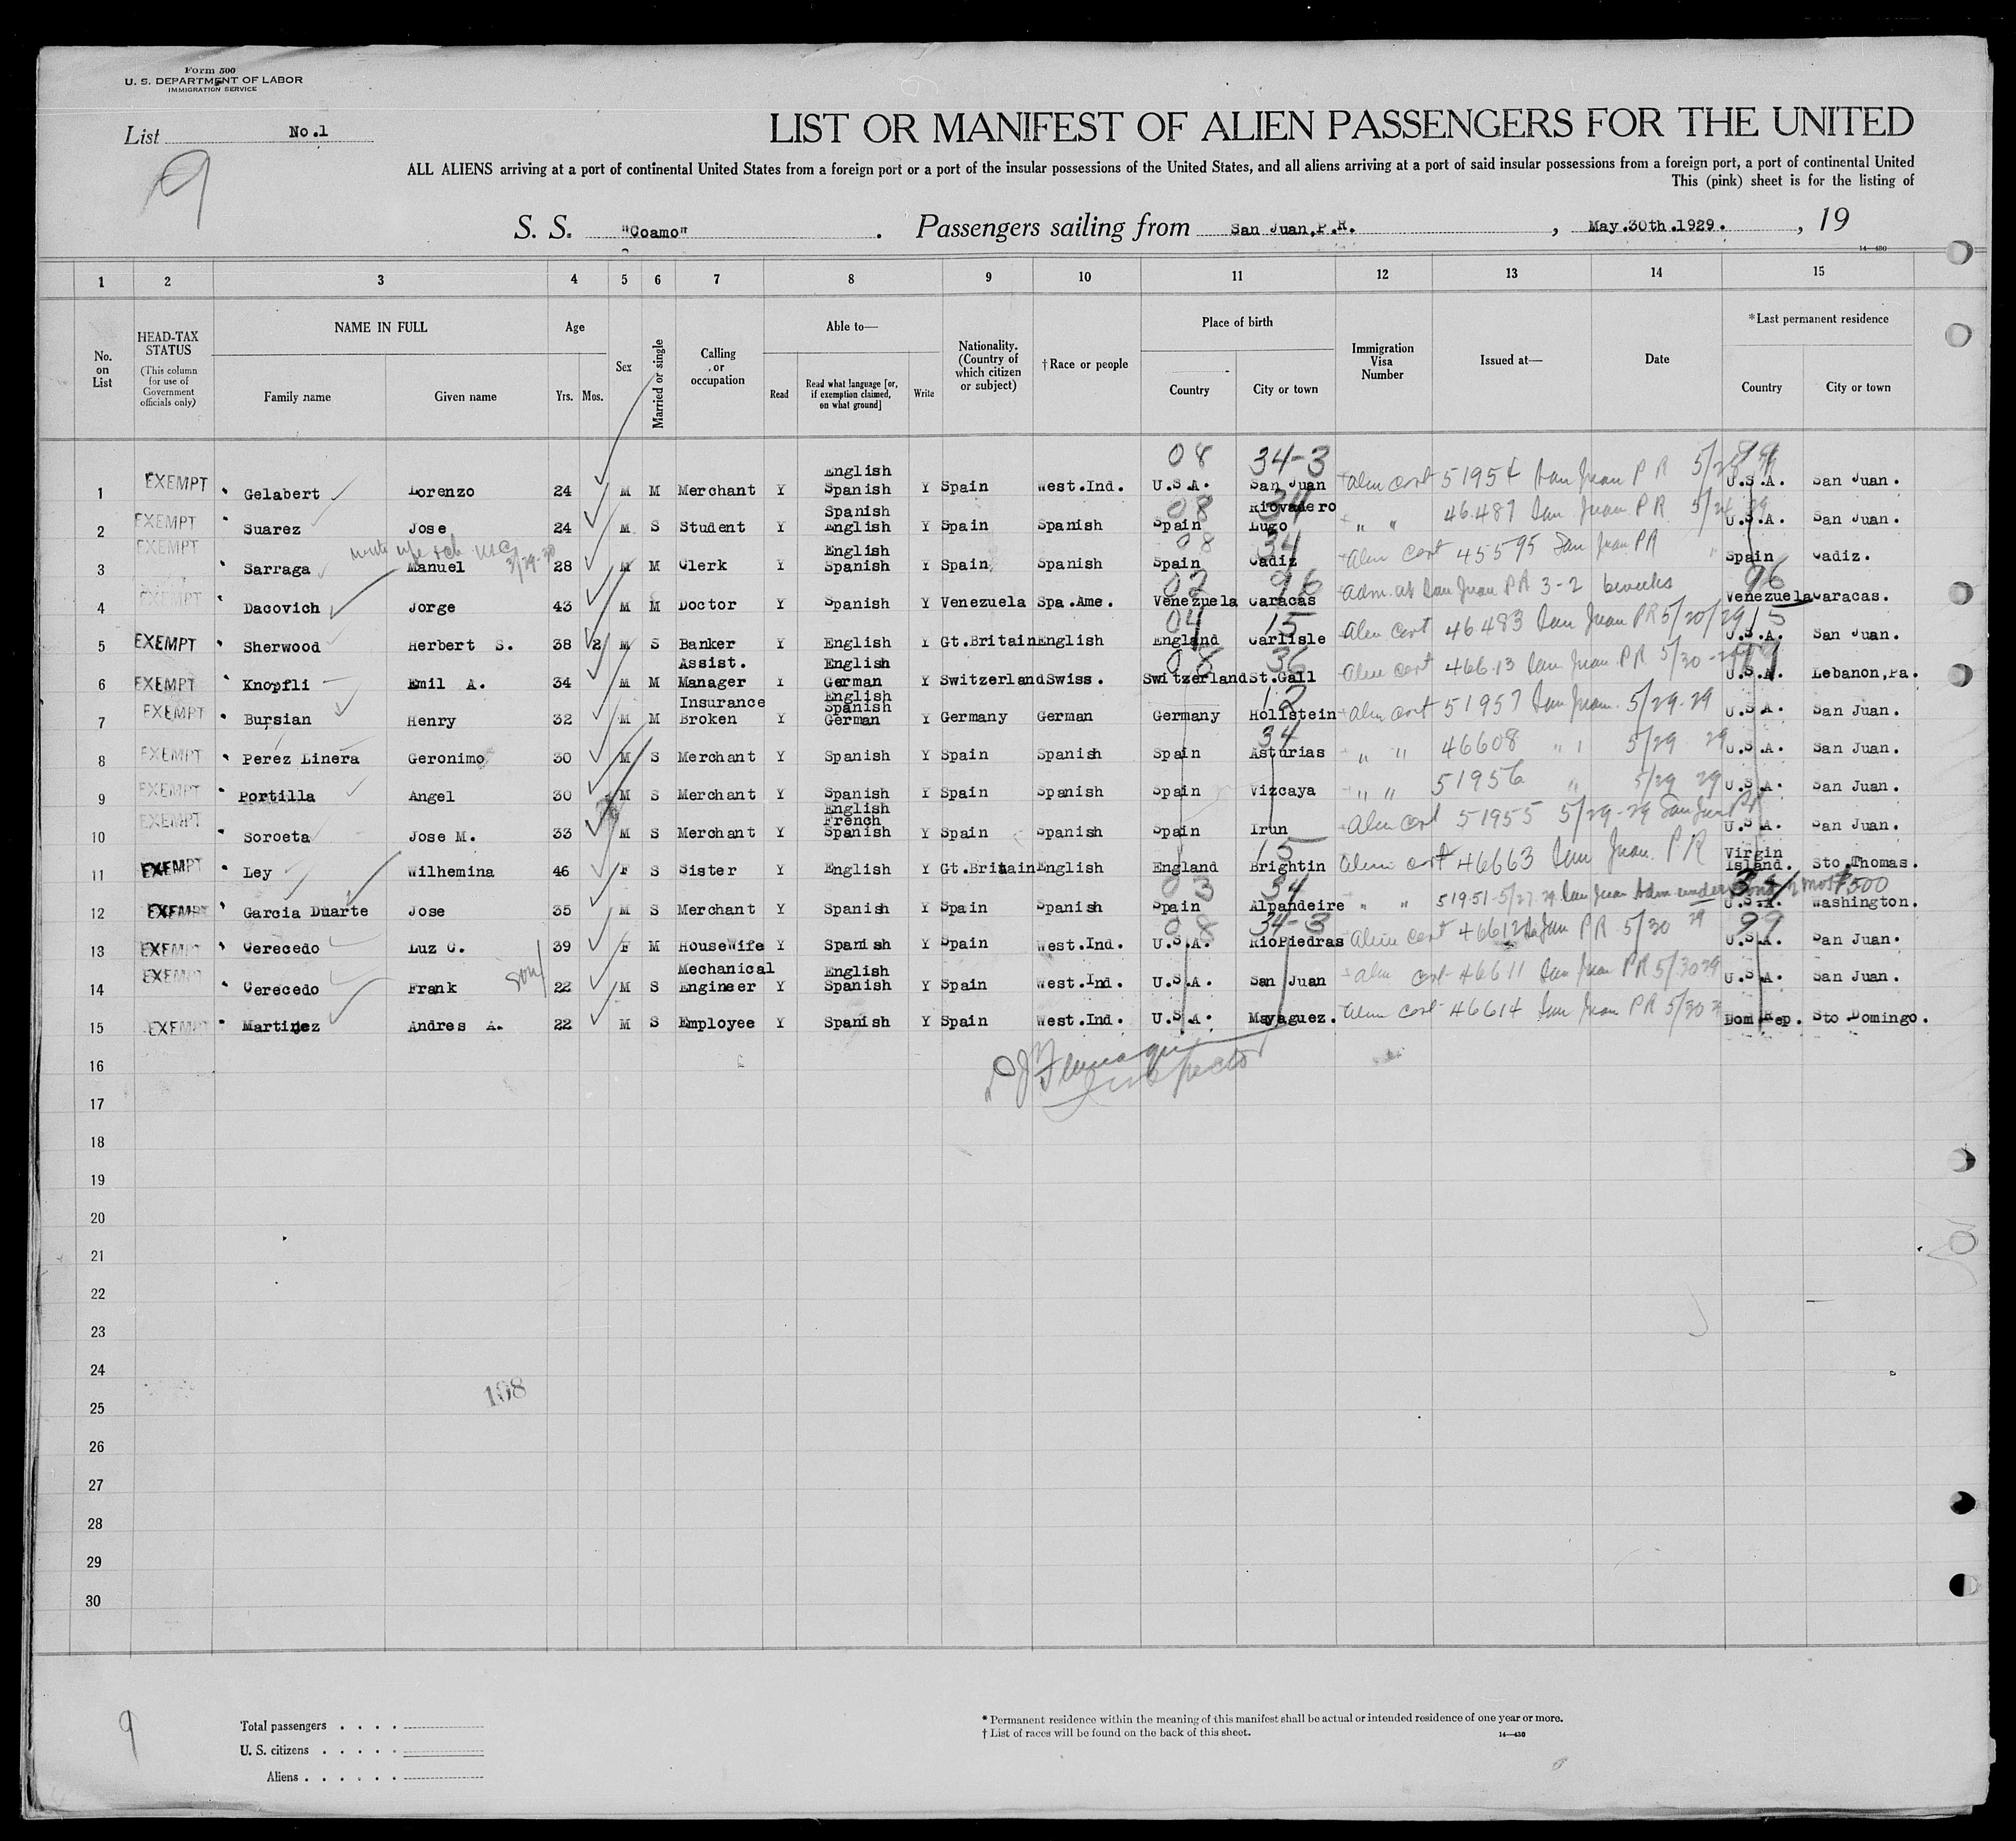 Form 500
U. S. DEPARTMENT OF LABOR
IMMIGRATION SERVICE
List No.1
9
LIST OR MANIFEST OF ALIEN PASSENGERS FOR THE UNITED
ALL ALIENS arriving at a port of continental United States from a foreign port or a port of the insular possessions of the United States, and all aliens arriving at a port of said insular possessions from a foreign port, a port of continental United
This (pink) sheet is for the listing of
S. S. "Coamo" . Passengers sailing from San Juan,P.R. , May.30th.1929. , 19
14—430
1 2 3 4 5 6 7 8 9 10 11 12 13 14 15
No. on List
HEAD-TAX STATUS
(This column for use of Government officials only)
NAME IN FULL
Family name Given name
Age
Yrs. Mos.
Sex
Married or single
Calling or occupation
Able to—
Read
Read what language [or, if exemption claimed, on what ground]
Write
Nationality. (Country of which citizen or subject)
†Race or people
Place of birth
Country City or town
Immigration Visa Number
Issued at—
Date
*Last permanent residence
Country City or town
08 34-3 99
1 EXEMPT Gelabert Lorenzo 24 M M Merchant Y English Spanish Y Spain West.Ind. U.S.A. San Juan Alien cert 51954 San Juan P R U.S.A. San Juan.
08 34
2 EXEMPT Suarez Jose 24 M S Student Y Spanish English Y Spain Spanish Spain Riovadero Lugo " " 46.487 San Juan P R 5/24 29 U.S.A. San Juan.
08 34
3 EXEMPT Sarraga Manuel 28 M M Clerk Y English Spanish Y Spain Spanish Spain Cadiz Alien cert 45595 San Juan PR Spain Cadiz.
02 96 96
4 EXEMPT Dacovich Jorge 43 M M Doctor Y Spanish Y Venezuela Spa.Ame. Venezuela Caracas Adm. at San Juan PR 3-2 6 weeks Venezuela Caracas.
04 15 15
5 EXEMPT Sherwood Herbert S. 38 2 M S Banker Y English Y Gt.Britain English England Carlisle Alien cert 46483 San Juan PR 5/20/29 U.S.A. San Juan.
08 36 99
6 EXEMPT Knopfli Emil A. 34 M M Assist. Manager Y English German Y Switzerland Swiss. Switzerland St.Gall Alien cert 46613 San Juan PR 5/30-29 U.S.A. Lebanon,Pa.
12
7 EXEMPT Bursian Henry 32 M M Insurance Broken Y English Spanish German Y Germany German Germany Hollstein Alien cert 51957 San Juan. 5/29-29 U.S.A. San Juan.
34
8 EXEMPT Perez Linera Geronimo 30 M S Merchant Y Spanish Y Spain Spanish Spain Asturias " " 46608 " 5/29 29 U.S.A. San Juan.
9 EXEMPT Portilla Angel 30 M S Merchant Y Spanish Y Spain Spanish Spain Vizcaya " " 51956 " 5/29 29 U.S.A. San Juan.
10 EXEMPT Soroeta Jose M. 33 M S Merchant Y English French Spanish Y Spain Spanish Spain Irun Alien cert 51955 5/29-29 San Juan PR U.S.A. San Juan.
15
11 EXEMPT Ley Wilhemina 46 F S Sister Y English Y Gt.Britain English England Brightin Alien cert 46663 San Juan. P R Virgin Island. Sto.Thomas.
03 34
12 EXEMPT Garcia Duarte Jose 35 M S Merchant Y Spanish Y Spain Spanish Spain Alpandeire " " 51951-5/27-29 San Juan Adm under bond $500 U.S.A. Washington.
08 34-3 99
13 EXEMPT Cerecedo Luz C. 39 F M HouseWife Y Spanish Y Spain West.Ind. U.S.A. RioPiedras Alien cert 46612 San Juan PR 5/30 29 U.S.A. San Juan.
14 EXEMPT Cerecedo Frank son 22 M S Mechanical Engineer Y English Spanish Y Spain West.Ind. U.S.A. San Juan Alien cert 46611 San Juan PR 5/30 29 U.S.A. San Juan.
15 EXEMPT Martinez Andres A. 22 M S Employee Y Spanish Y Spain West.Ind. U.S.A. Mayaguez. Alien cert 46614 San Juan PR 5/30 Dom.Rep. Sto Domingo.
16
Inspector
17
18
19
20
21
22
23
24
108
25
26
27
28
29
30
9
Total passengers . . . .
U. S. citizens . . . . .
Aliens . . . . . .
* Permanent residence within the meaning of this manifest shall be actual or intended residence of one year or more.
† List of races will be found on the back of this sheet.
14—430